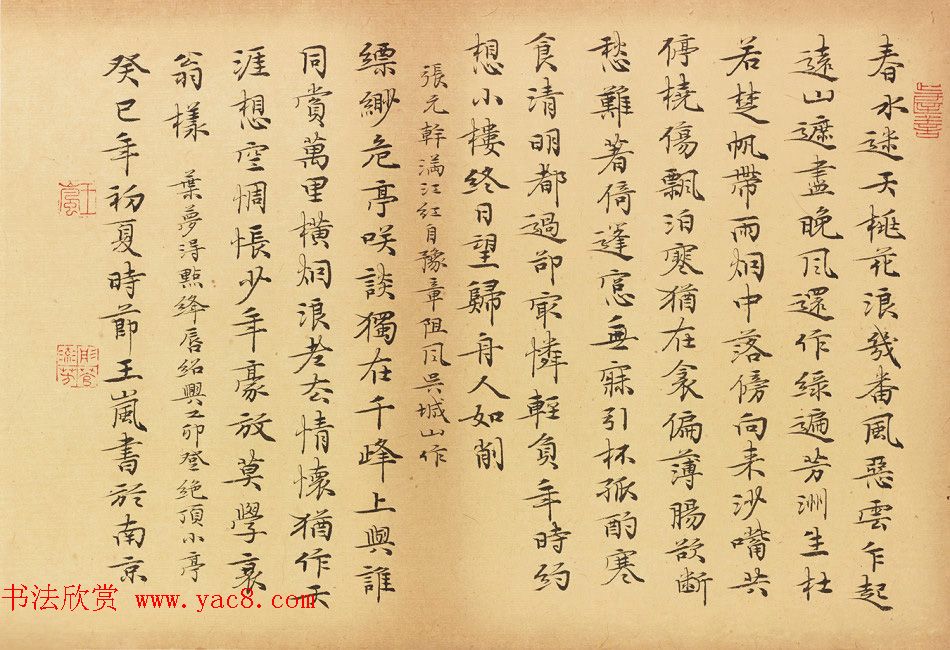 春水迷天桃花浪幾番風惡雲乍起
遠山遮盡晚風還作綠遍芳洲生杜
若楚帆帶雨烟中落傍向来沙嘴共
停橈傷飄泊寒猶在衾偏薄腸欲斷
愁難著倚篷窓無寐引杯孤酌寒
食清明都過卻最憐輕負年時約
想小樓終日望歸舟人如削
張元幹滿江紅自豫章阻風吳城山作
縹緲危亭咲談獨在千峰上與誰
同賞萬里橫烟浪老去情懷猶作天
涯想空惆悵少年豪放莫學衰
翁樣 葉夢得點絳唇紹興乙卯登絕頂小亭
癸巳年初夏時節王嵐書於南京
书法欣赏 www.yac8.com